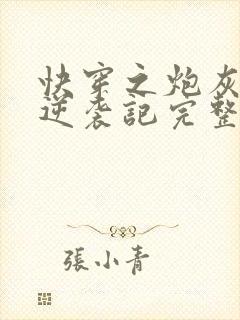 快穿之炮灰
逆袭記完整
張小青